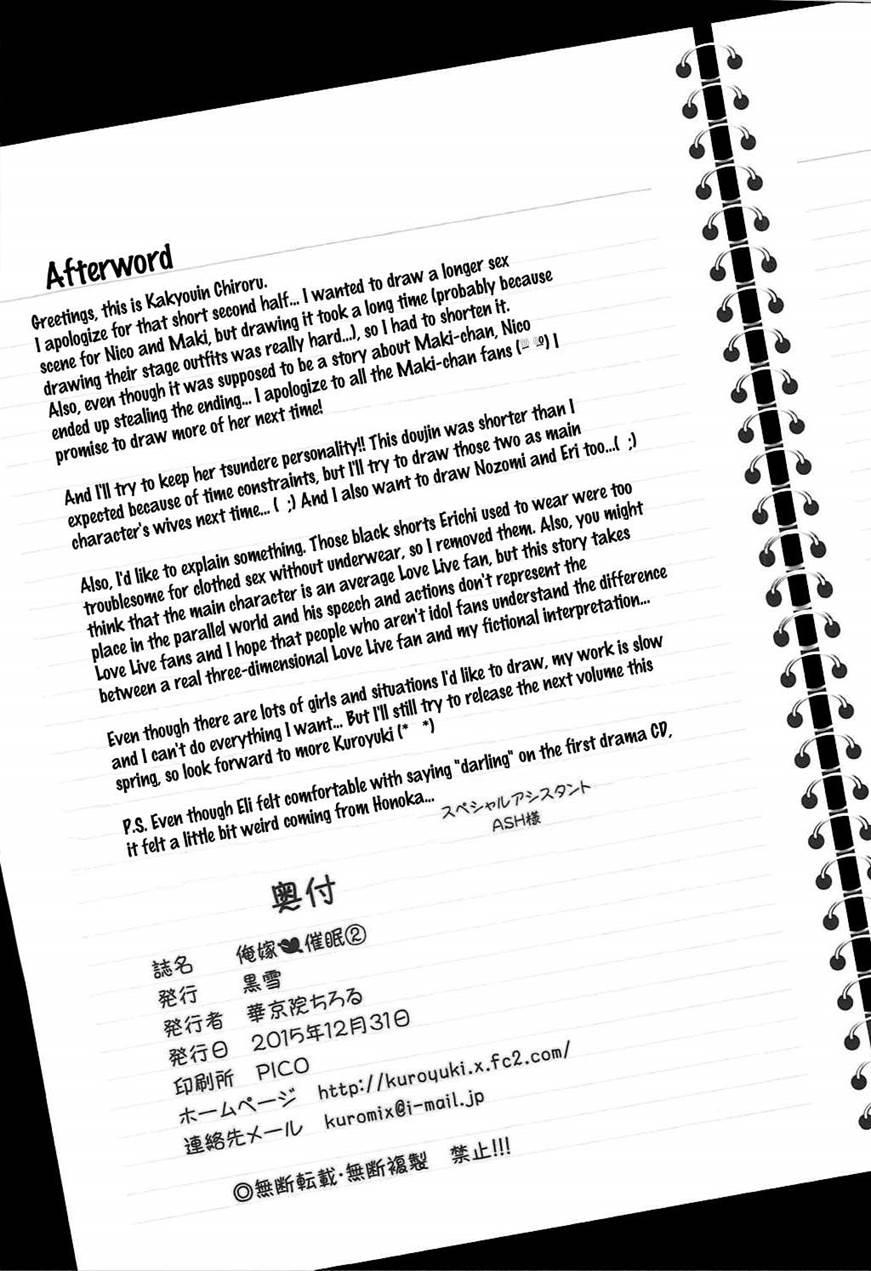 Afterword
Greetings, this is Kakyouin Chiroru.
I apologize for that short second half... I wanted to draw a longer sex
scene for Nico and Maki, but drawing it took a long time (probably because
drawing their stage outfits was really hard...), so I had to shorten it.
Also, even though it was supposed to be a story about Maki-chan, Nico
ended up stealing the ending... I apologize to all the Maki-chan fans ( ) I
promise to draw more of her next time!
And I'll try to keep her tsundere personality!! This doujin was shorter than I
expected because of time constraints, but I'll try to draw those two as main
character's wives next time... ( ;) And I also want to draw Nozomi and Eri too...( ;)
Also, I'd like to explain something. Those black shorts Erichi used to wear were too
troublesome for clothed sex without underwear, so I removed them. Also, you might
think that the main character is an average Love Live fan, but this story takes
place in the parallel world and his speech and actions don't represent the
Love Live fans and I hope that people who aren't idol fans understand the difference
between a real three-dimensional Love Live fan and my fictional interpretation...
Even though there are lots of girls and situations I'd like to draw, my work is slow
and I can't do everything I want... But I'll still try to release the next volume this
spring, so look forward to more Kuroyuki (* *)
P.S. Even though Eli felt comfortable with saying "darling" on the first drama CD,
it felt a little bit weird coming from Honoka...
スペシャルアシスタント
ASH様
奥付
誌名 俺嫁催眠②
発行 黒雪
発行者 華京院ちろる
発行日 2015年12月31日
印刷所 PICO
ホームページ http://kuroyuki.x.fc2.com/
連絡先メール kuromix@i-mail.jp
◎無断転載・無断複製 禁止!!!